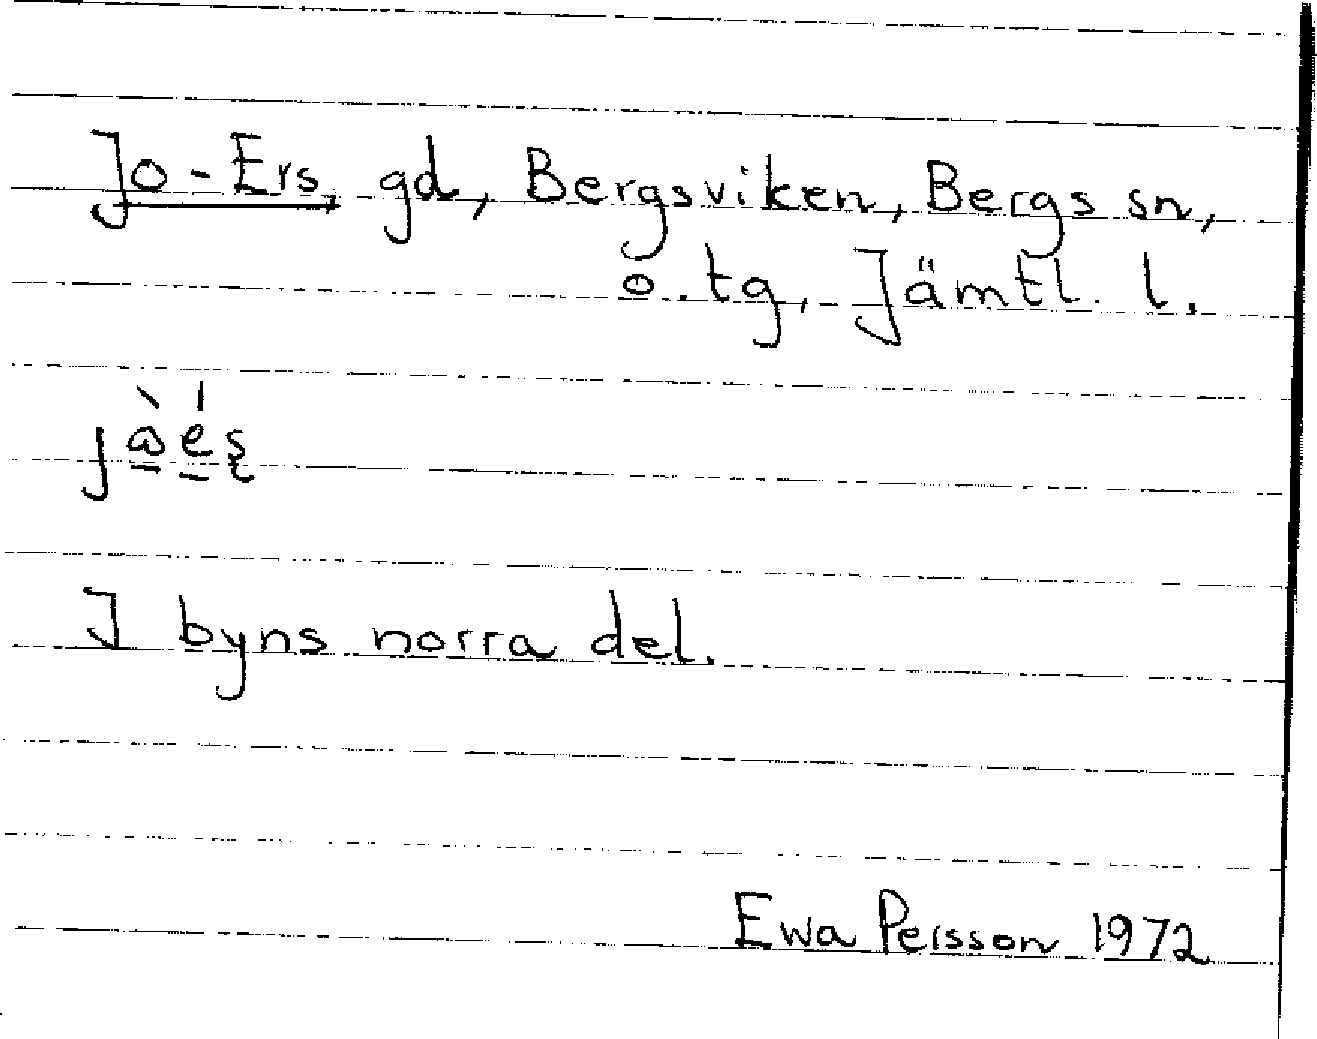 Jo-Ers, gd, Bergsviken, Bergs sn,
o. tg, Jämtl. l.
I byns norra del.
Ewa Persson 1972